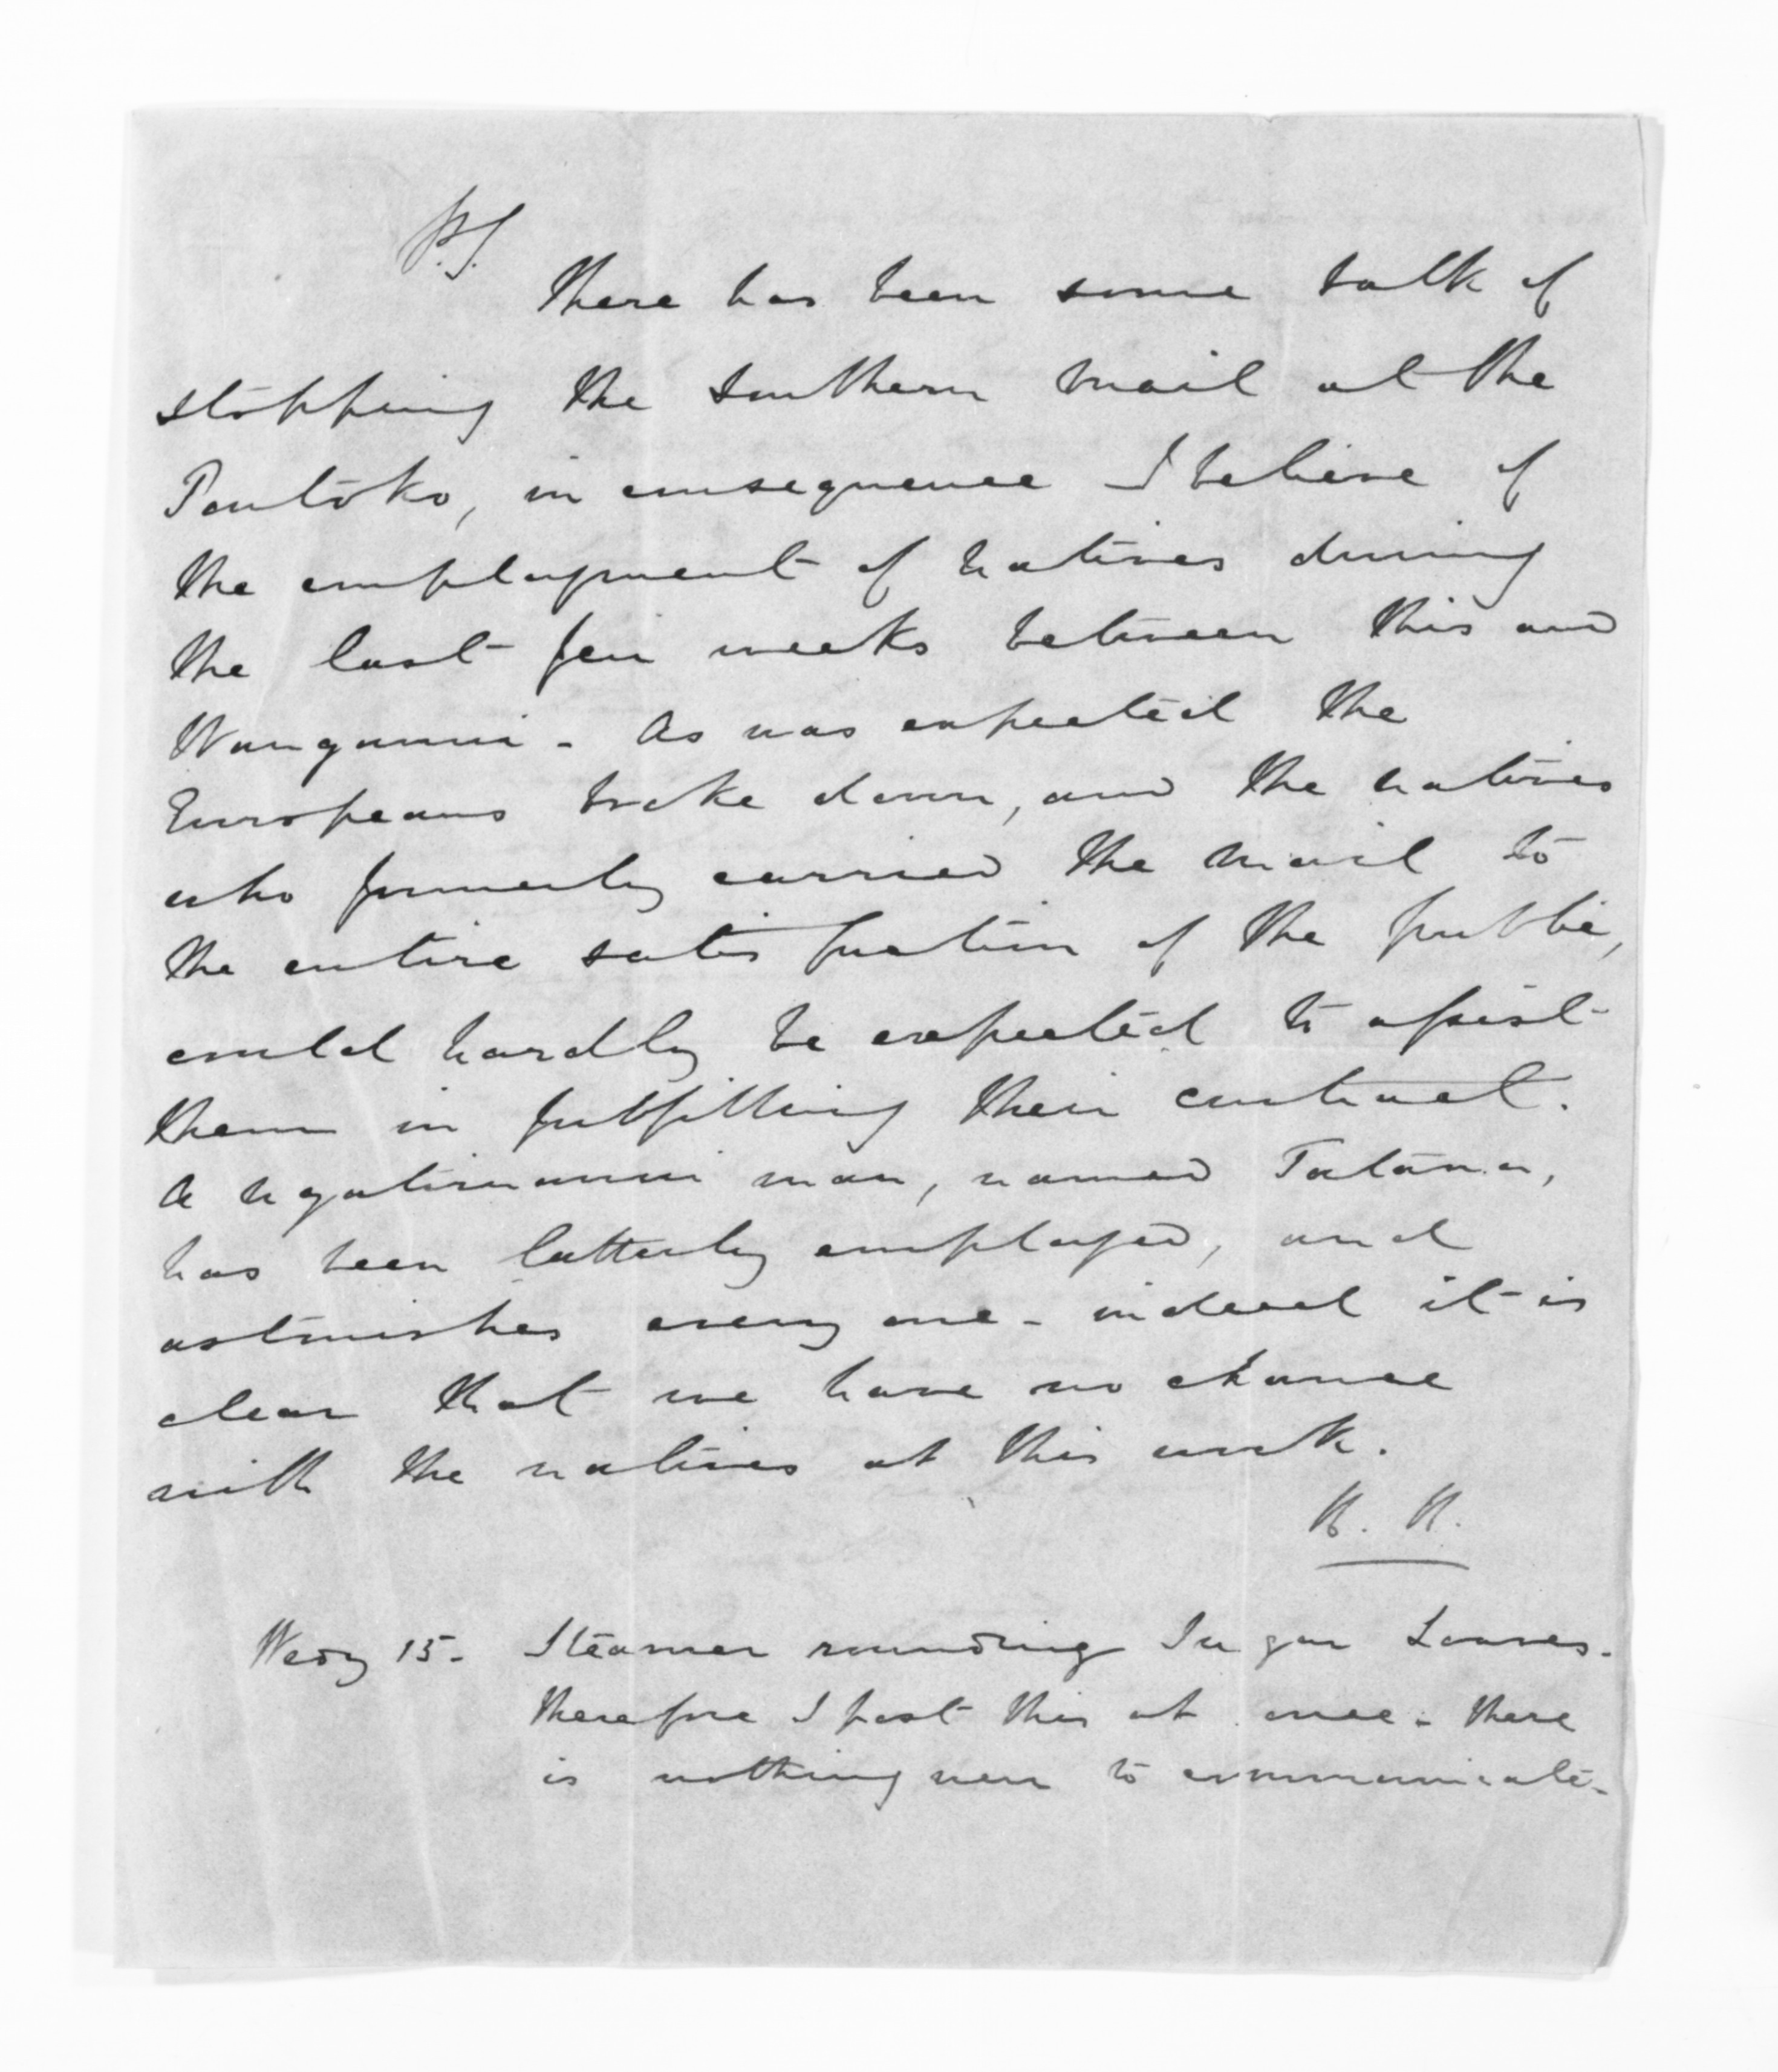 P.S.
There has been some talk of
stopping the Southern Mail at the
Poutoko, in consequence I believe of
the employment of natives during
the last few weeks between this and
Wanganui - As was expected the
Europeans broke down, and the natives
who formerly carried the Mail to
the entire satisfaction of the public,
could hardly be expected to assist
them in fulfilling their contract.
A Ngatiruanui man, named Tatana,
has been latterly employed, and
astonishes every one - indeed it is
clear that we have no chance
with the natives at this work.
R. R.
Wedy 15 - Steamer rounding Sugar Loaves -
therefore I post this at once - there
is nothing new to communicate -